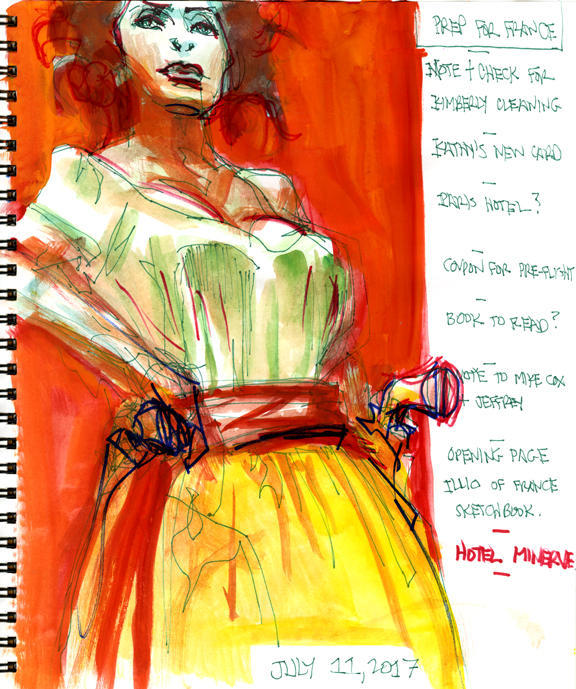 PREP FOR FRANCE
NOTE + CHECK FOR
KIMBERLY CLEANING
KATHY'S NEW CARD
PARIS HOTEL?
COUPON FOR PRE-FLIGHT
BOOK TO READ?
NOTE TO MIKE COX
+ JEFFREY
OPENING PAGE
ILLO OF FRANCE
SKETCHBOOK.
HOTEL MINERVE
JULY 11, 2017